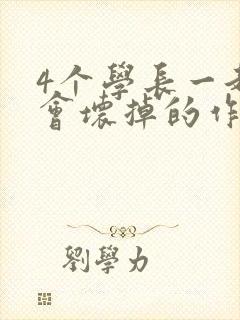 4个學長一
會壞掉的作
劉學力